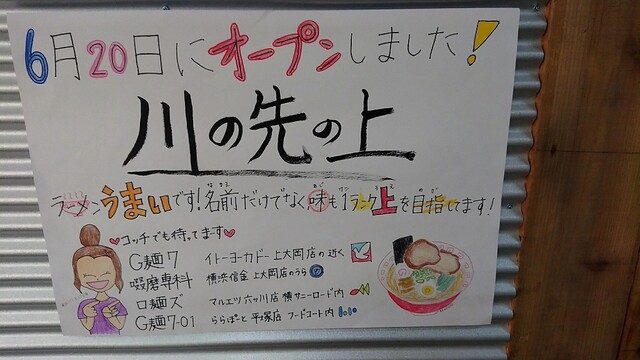 6月20日にオープンしました!
川の先の上
ラーメンうまいです!名前だけでなく味も1ランク上を目指してます!
コッチでも待ってます
G麺7 イトーヨーカドー上大岡店の近く
啜磨専科 横浜信金 上大岡店のうら
ロ麺ズ マルエツ六ッ川店 横サニーロード内
G麺7-01 ららぽーと平塚店 フードコート内